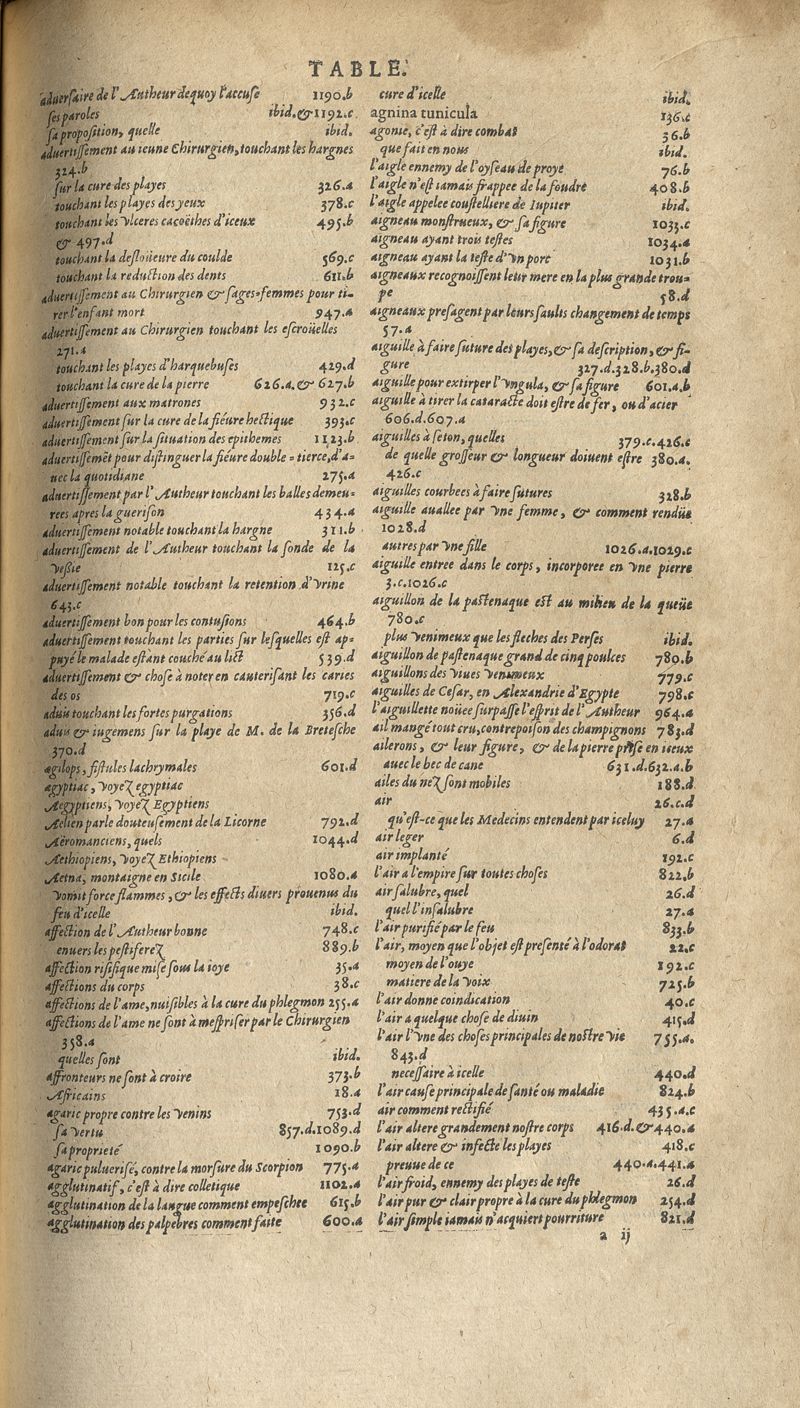 TABLE.
aduersaire de l'Autheur dequoy l'accuse 1190.b
ses paroles ibid.&1192.c
sa proposition, quelle ibid.
aduertissement au ieune Chirurgien, touchant les hargnes
324.b
sur la cure des playes 326.a
touchant les playes des yeux 378.c
touchant les vlceres cacoëthes d'iceux 495.b
& 497.d
touchant la desloüeure du coulde 569.c
touchant la reduction des dents 611.b
aduertissement au Chirurgien & sages-femmes pour ti-
rer l'enfant mort 947.a
aduertissement au Chirurgien touchant les escroüelles
271.a
touchant les playes d'harquebuses 429.d
touchant la cure de la pierre 626.a.& 627.b
aduertissement aux matrones 932.c
aduertissement sur la cure de la fiéure hectique 393.c
aduertissement sur la situation des epithemes 1123.b
aduertissemēt pour distinguer la fiéure double-tierce, d'a-
uec la quotidiane 275.a
aduertissement par l'Autheur touchant les balles demeu-
rees apres la guerison 434.a
aduertissement notable touchant la hargne 311.b
aduertissement de l'Autheur touchant la sonde de la
vessie 125.c
aduertissement notable touchant la retention d'vrine
643.c
aduertissement bon pour les contusions 464.b
aduertissement touchant les parties sur lesquelles est ap-
puyé le malade estant couché au lict 539.d
aduertissement & chose à noter en cauterisant les caries
des os 719.c
aduis touchant les fortes purgations 356.d
aduis & iugemens sur la playe de M. de la Bretesche
370.d
ægilops, fistules lachrymales 601.d
ægyptiac, voyez egyptiac
Aegyptiens, voyez Egyptiens
Aelien parle douteusement de la Licorne 792.d
Aëromanciens, quels 1044.d
Aethiopiens, voyez Ethiopiens
Aetna, montaigne en Sicile 1080.a
vomit force flammes, & les effects diuers prouenus du
feu d'icelle ibid.
affection de l'Autheur bonne 748.c
enuers les pestiferez 889.b
affection risifique mise sous la ioye 35.a
affections du corps 38.c
affections de l'ame, nuisibles à la cure du phlegmon 255.a
affections de l'ame ne sont à mespriser par le Chirurgien
358.a
quelles sont ibid.
affronteurs ne sont à croire 373.b
Africains 18.a
agaric propre contre les venins 753.d
sa vertu 857.d.1089.d
sa proprieté 1090.b
agaric puluerisé, contre la morsure du Scorpion 775.a
agglutinatif, c'est à dire colletique 1102.a
agglutination de la langue comment empeschee 615.b
agglutination des palpebres comment faite 600.a
cure d'icelle ibid.
agnina tunicula 136.c
agonie, c'est à dire combat 36.b
que fait en nous ibid.
l'aigle ennemy de l'oyseau de proye 76.b
l'aigle n'est iamais frappee de la foudre 408.b
l'aigle appelee coustelliere de Iupiter ibid.
aigneau monstrueux, & sa figure 1033.c
aigneau ayant trois testes 1034.a
aigneau ayant la teste d'vn porc 1031.b
aigneaux recognoissent leur mere en la plus grande trou-
pe 58.d
aigneaux presagent par leurs saults changement de temps
57.a
aiguille à faire suture des playes, & sa description, & fi-
gure 327.d.328.b.380.d
aiguille pour extirper l'vngula, & sa figure 601.a.b
aiguille à tirer la cataracte doit estre de fer, ou d'acier
606.d.607.a
aiguilles à seton, quelles 379.c.426.c
de quelle grosseur & longueur doiuent estre 380.a.
426.c
aiguilles courbees à faire sutures 328.b
aiguille auallee par vne femme, & comment rendüe
1028.d
autres par vne fille 1026.a.1029.c
aiguille entree dans le corps, incorporee en vne pierre
3.c.1026.c
aiguillon de la pastenaque est au milieu de la queüe
780.c
plus venimeux que les fleches des Perses ibid.
aiguillon de pastenaque grand de cinq poulces 780.b
aiguillons des viues venimeux 779.c
aiguilles de Cesar, en Alexandrie d'Egypte 798.c
l'aiguillette noüee surpasse l'esprit de l'Autheur 964.a
ail mangé tout cru, contrepoison des champignons 783.d
ailerons, & leur figure, & de la pierre prise en iceux
auec le bec de cane 631.d.632.a.b
ailes du nez sont mobiles 188.d
air 26.c.d
qu'est-ce que les Medecins entendent par iceluy 27.a
air leger 6.d
air implanté 192.c
l'air a l'empire sur toutes choses 822.b
air salubre, quel 26.d
quel l'insalubre 27.a
l'air purifié par le feu 833.b
l'air, moyen que l'objet est presenté à l'odorat 22.c
moyen de l'ouye 192.c
matiere de la voix 725.b
l'air donne coindication 40.c
l'air a quelque chose de diuin 415.d
l'air l'vne des choses principales de nostre vie 755.a.
843.d
necessaire à icelle 440.d
l'air cause principale de santé ou maladie 824.b
air comment rectifié 435.a.c
l'air altere grandement nostre corps 416.d.&440.a
l'air altere & infecte les playes 418.c
preuue de ce 440.a.441.a
l'air froid, ennemy des playes de teste 26.d
l'air pur & clair propre à la cure du phlegmon 254.d
l'air simple iamais n'acquiert pourriture 821.d
a ij